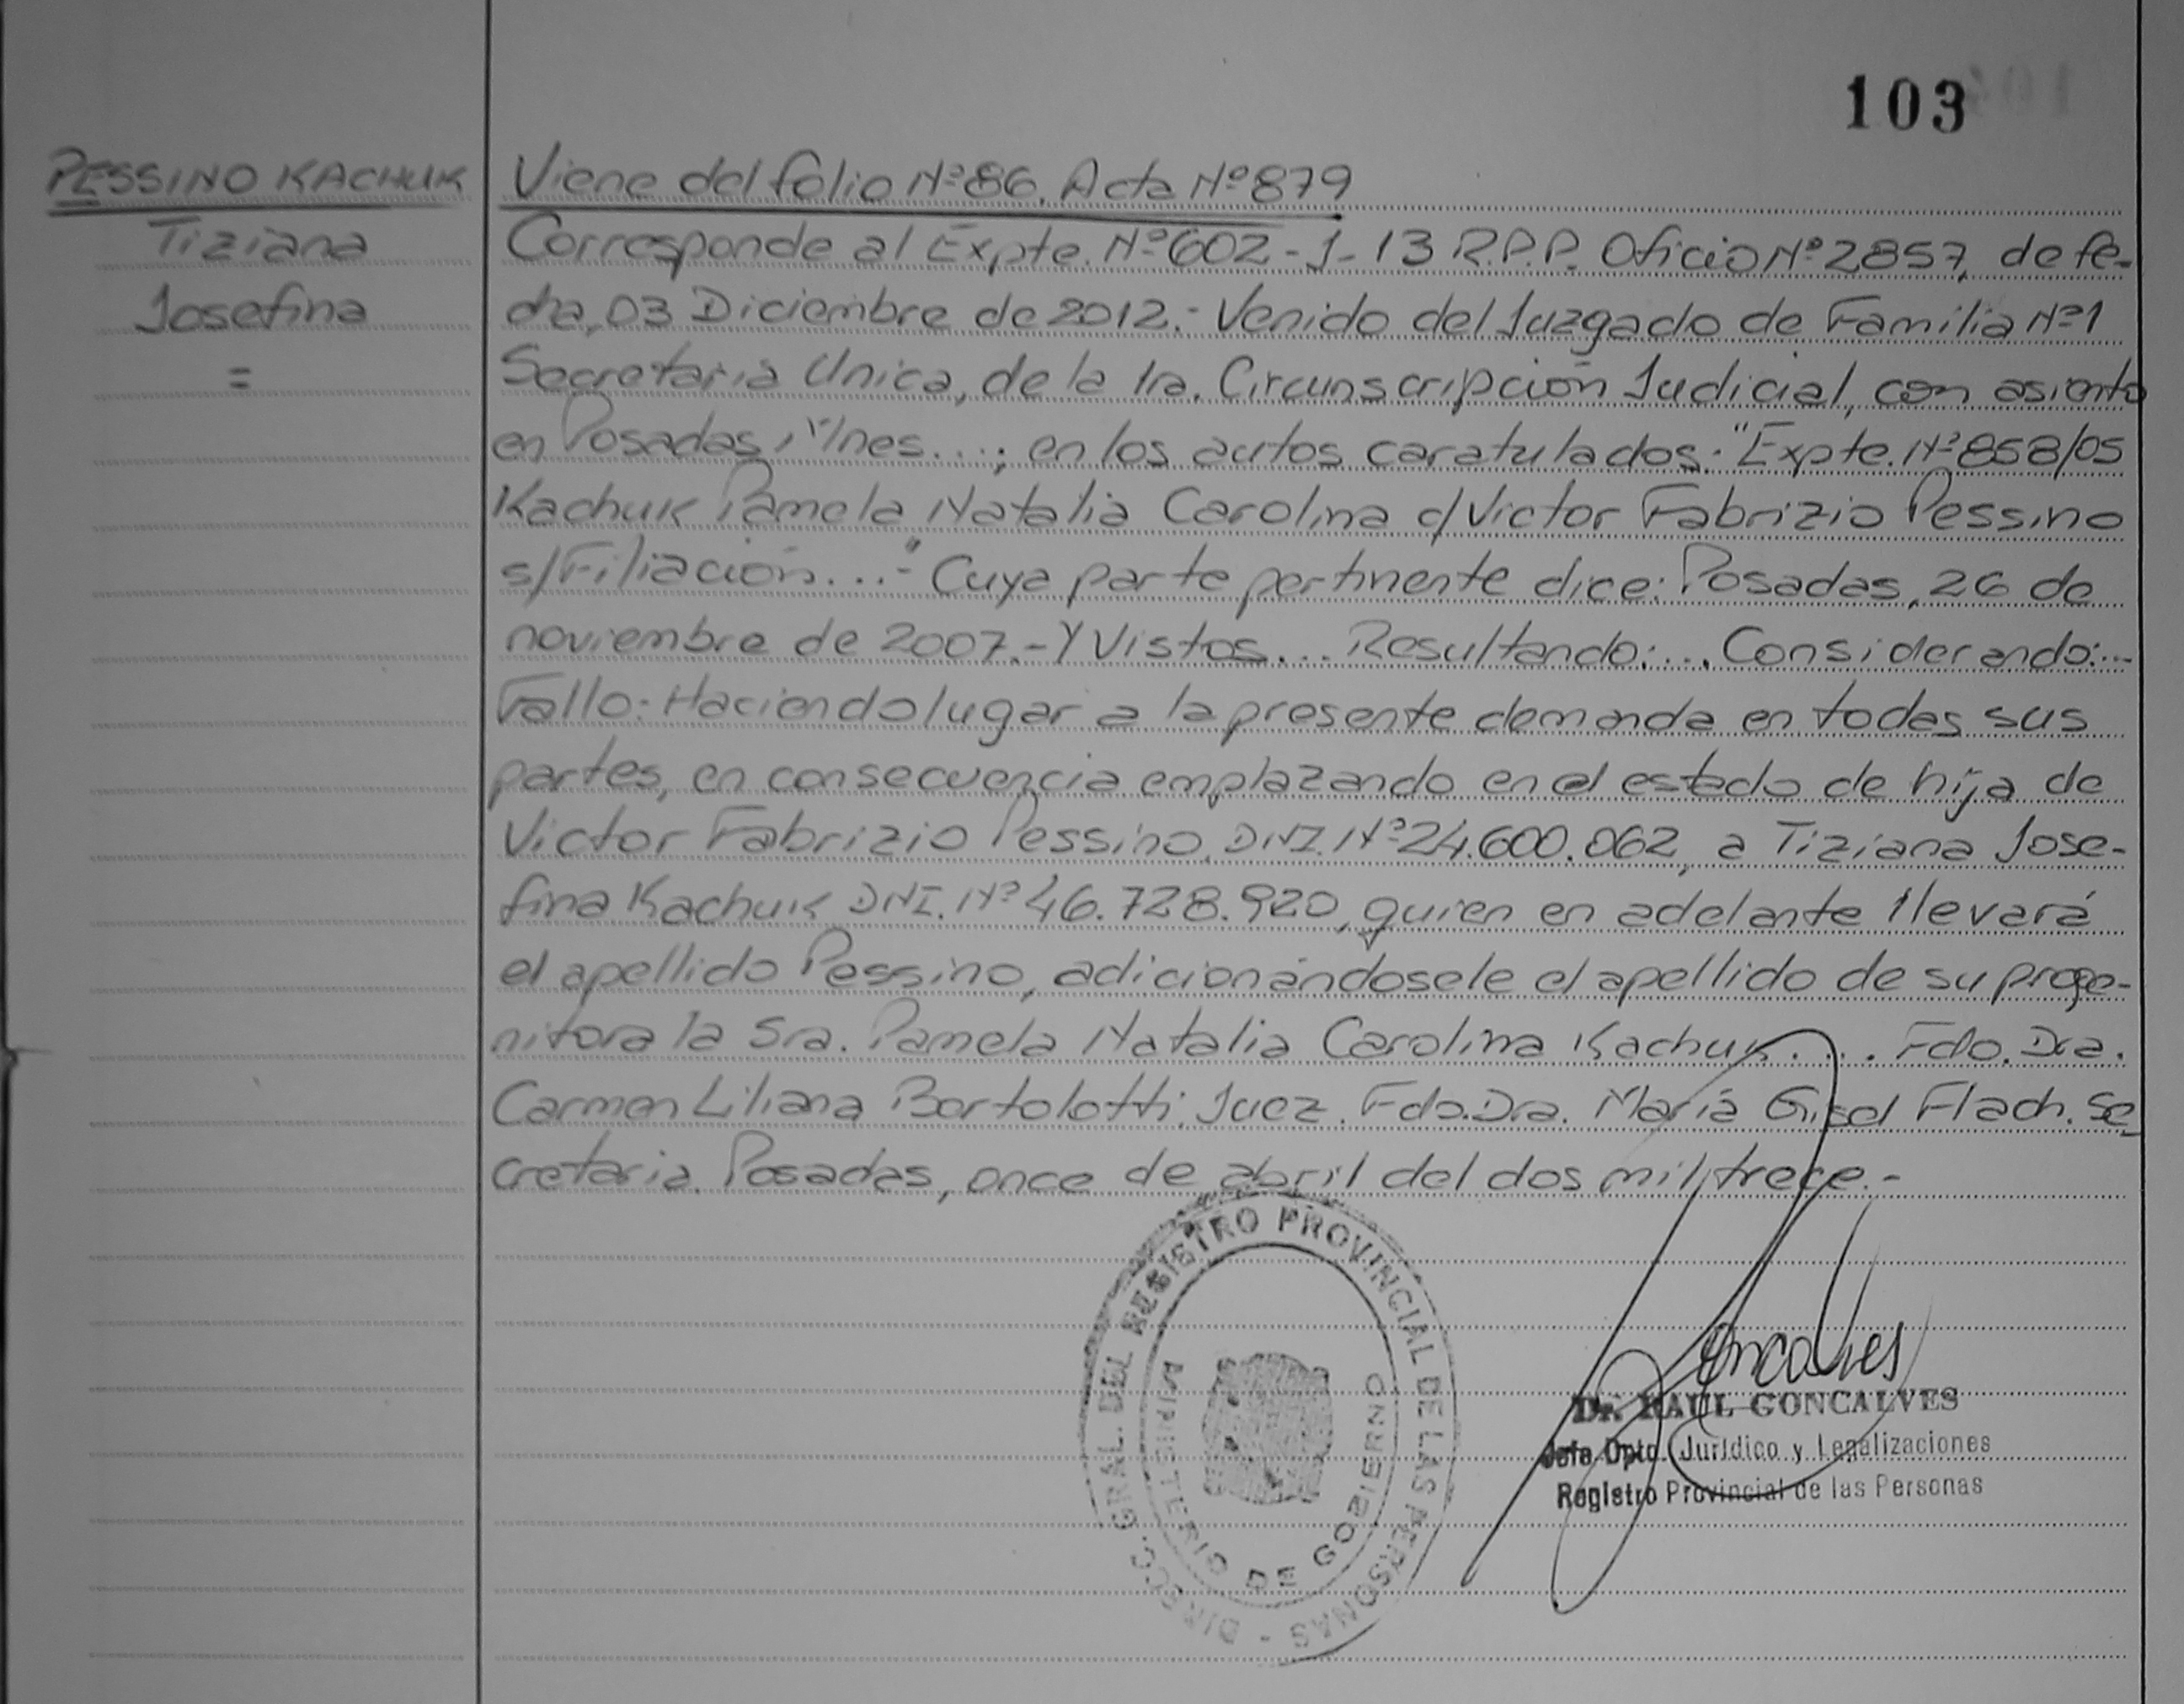 103
PESSINO KACHUK
Tiziana
Josefina
=
Viene del folio Nº 86. Acta Nº 879
Corresponde al Expte. Nº 602-J-13 R.P.P. Oficio Nº 2857, de fe-
cha, 03 Diciembre de 2012.- Venido del Juzgado de Familia Nº 1
Secretaria Unica, de la 1ra. Circunscripción Judicial, con asiento
en Posadas, Mnes...; en los autos caratulados: "Expte. Nº 858/05
Kachuk Pamela Natalia Carolina c/ Victor Fabrizio Pessino
s/ Filiación...-" Cuya parte pertinente dice: Posadas, 26 de
noviembre de 2007.- Y Vistos... Resultando:... Considerando:...
Fallo: Haciendo lugar a la presente demanda en todas sus
partes, en consecuencia emplazando en el estado de hija de
Victor Fabrizio Pessino. DNI. Nº 24.600.062, a Tiziana Jose-
fina Kachuk DNI. Nº 46.728.920, quien en adelante llevará
el apellido Pessino, adicionándosele el apellido de su proge-
nitora la Sra. Pamela Natalia Carolina Kachuk.... Fdo. Dra.
Carmen Liliana Bortolotti. Juez. Fdo. Dra. María Gisel Flach. Se
cretaria. Posadas, once de abril del dos mil trece.-
DIRECC. GRAL. DEL REGISTRO PROVINCIAL DE LAS PERSONAS -
MINISTERIO DE GOBIERNO
Goncalves
Dr. RAUL GONCALVES
Jefe Dpto. Jurídico y Legalizaciones
Registro Provincial de las Personas